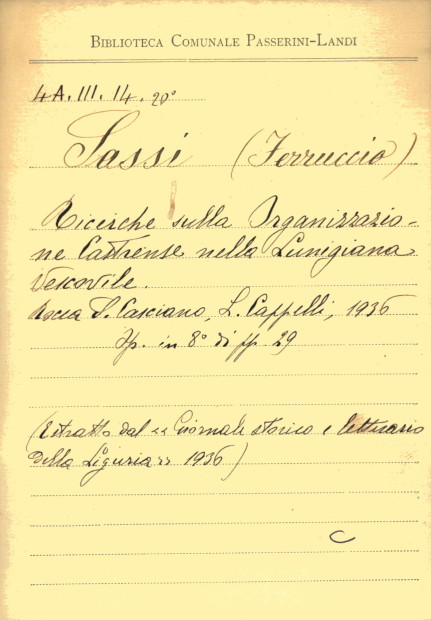 BIBLIOTECA COMUNALE PASSERINI-LANDI
4A. III. 14. 20°
Sassi (Ferruccio)
Ricerche sulla Organizzazio-
ne Castrense nella Lunigiana
Vescovile.
Rocca S. Casciano, L. Cappelli, 1936
Op. in 8° di pp 29
(Estratto dal «Giornale storico e letterario
della Liguria» 1936)
C